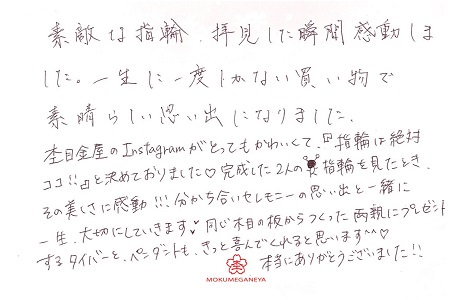 素敵な指輪、拝見した瞬間感動しま
した。一生に一度しかない買い物で
素晴らしい思い出になりました。
杢目金屋のInstagramがとってもかわいくて、『指輪は絶対
ココ!!』と決めておりました♡完成した2人の指輪を見たとき、
その美しさに感動!!!分かち合いセレモニーの思い出と一緒に
一生、大切にしていきます♥同じ木目の板からつくった両親にプレゼント
するタイバーと、ペンダントも、きっと喜んでくれると思います^^♡
本当にありがとうございました!!
MOKUMEGANEYA